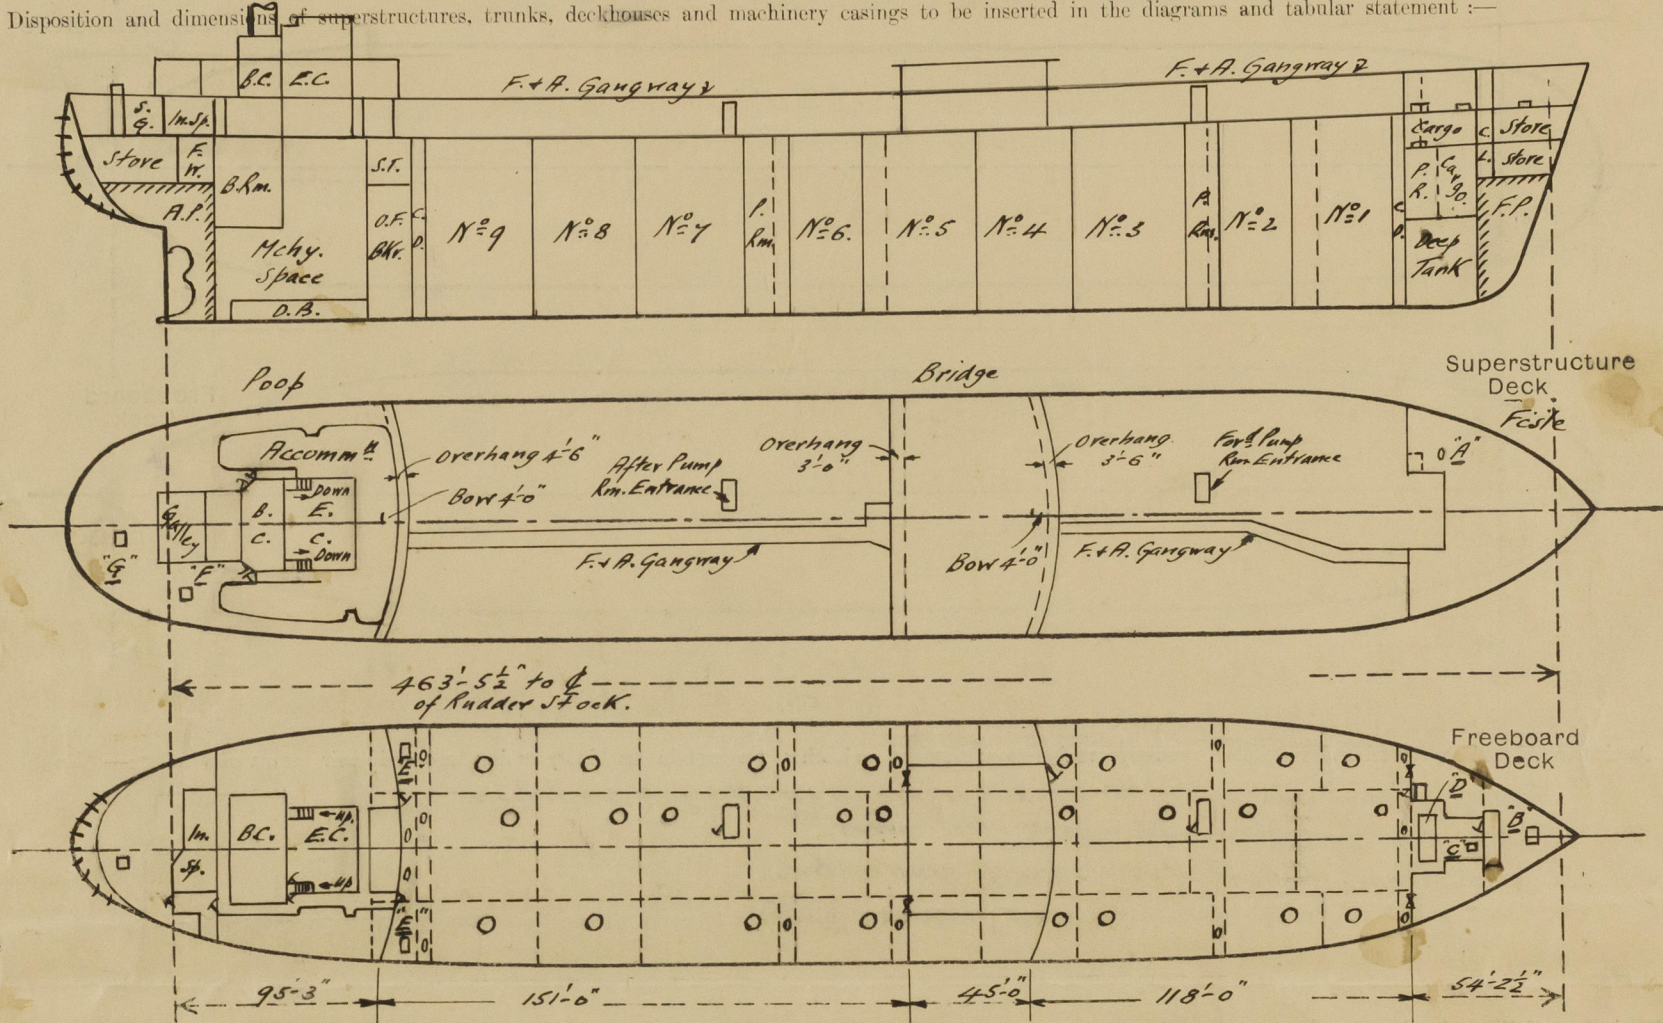 Disposition and dimensions of superstructures, trunks, deckhouses and machinery casings to be inserted in the diagrams and tabular statement :—
B.C. E.C.
F. & A. Gangway
F. & A. Gangway
S.
G.
In. Sp.
Store
F.
W.
B.Rm.
A.P.
Mchy.
Space
D.B.
S.T.
O.F.
BKr.
C.
D.
Nº 9
Nº 8
Nº 7
P.
Rm.
Nº 6.
Nº 5
Nº 4
Nº 3
P.
Rm.
Nº 2
Nº 1
C.
D.
Cargo
P.
R.
Cargo.
Deep
Tank
C.
L.
Store
Store
F.P.
Poop
Bridge
Superstructure
Deck
Fcsle
Accommn
Overhang 4'-6"
Bow 4'-0"
After Pump
Rm. Entrance
Overhang
3'-0"
Overhang
3'-6"
Ford Pump
Rm Entrance
"A"
Galley
B.
C.
E.
C.
Down
Down
"G"
"F"
F. & A. Gangway
Bow 4'-0"
F. & A. Gangway
463'-5½" to ℄
of Rudder Stock.
Freeboard
Deck
In.
Sp.
B.C.
E.C.
up.
up
"E"
"E"
"D"
"C"
"B"
95'-3"
151'-0"
45'-0"
118'-0"
54'-2½"